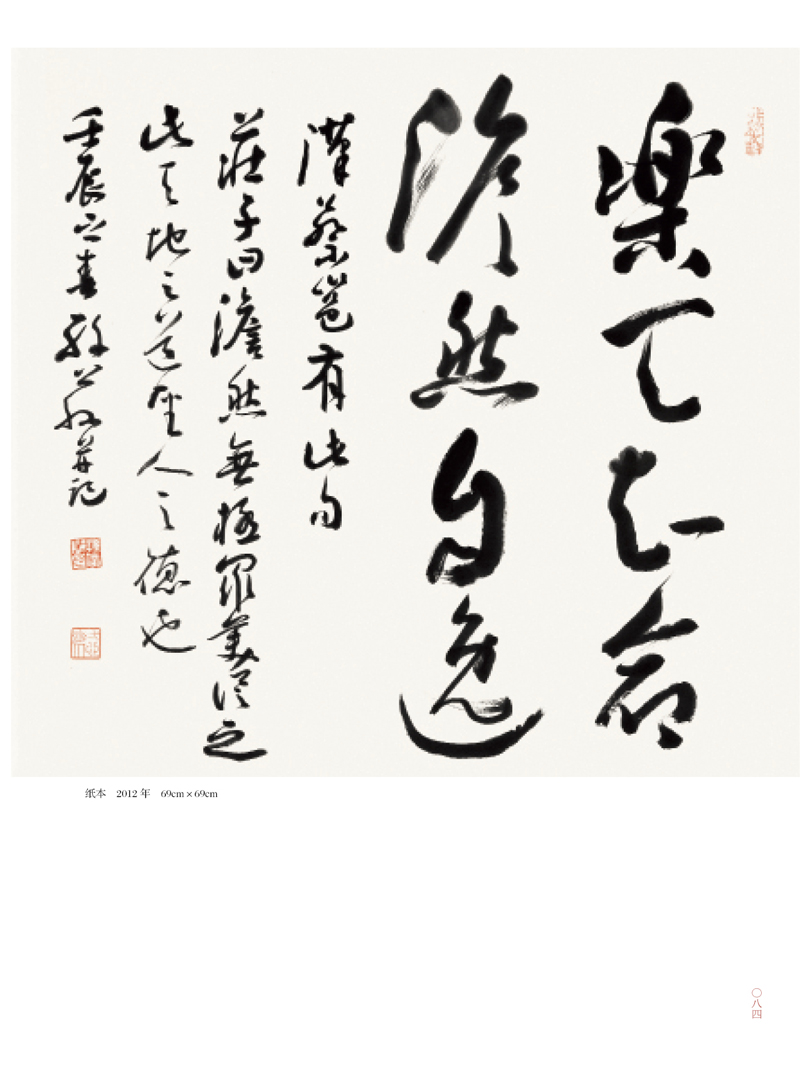 樂天知命
澹然自逸
漢蔡邕有此句
莊子曰澹然無極眾美從之
此天地之道聖人之德也
壬辰之春 并記
纸本　2012 年　69cm×69cm
〇八四